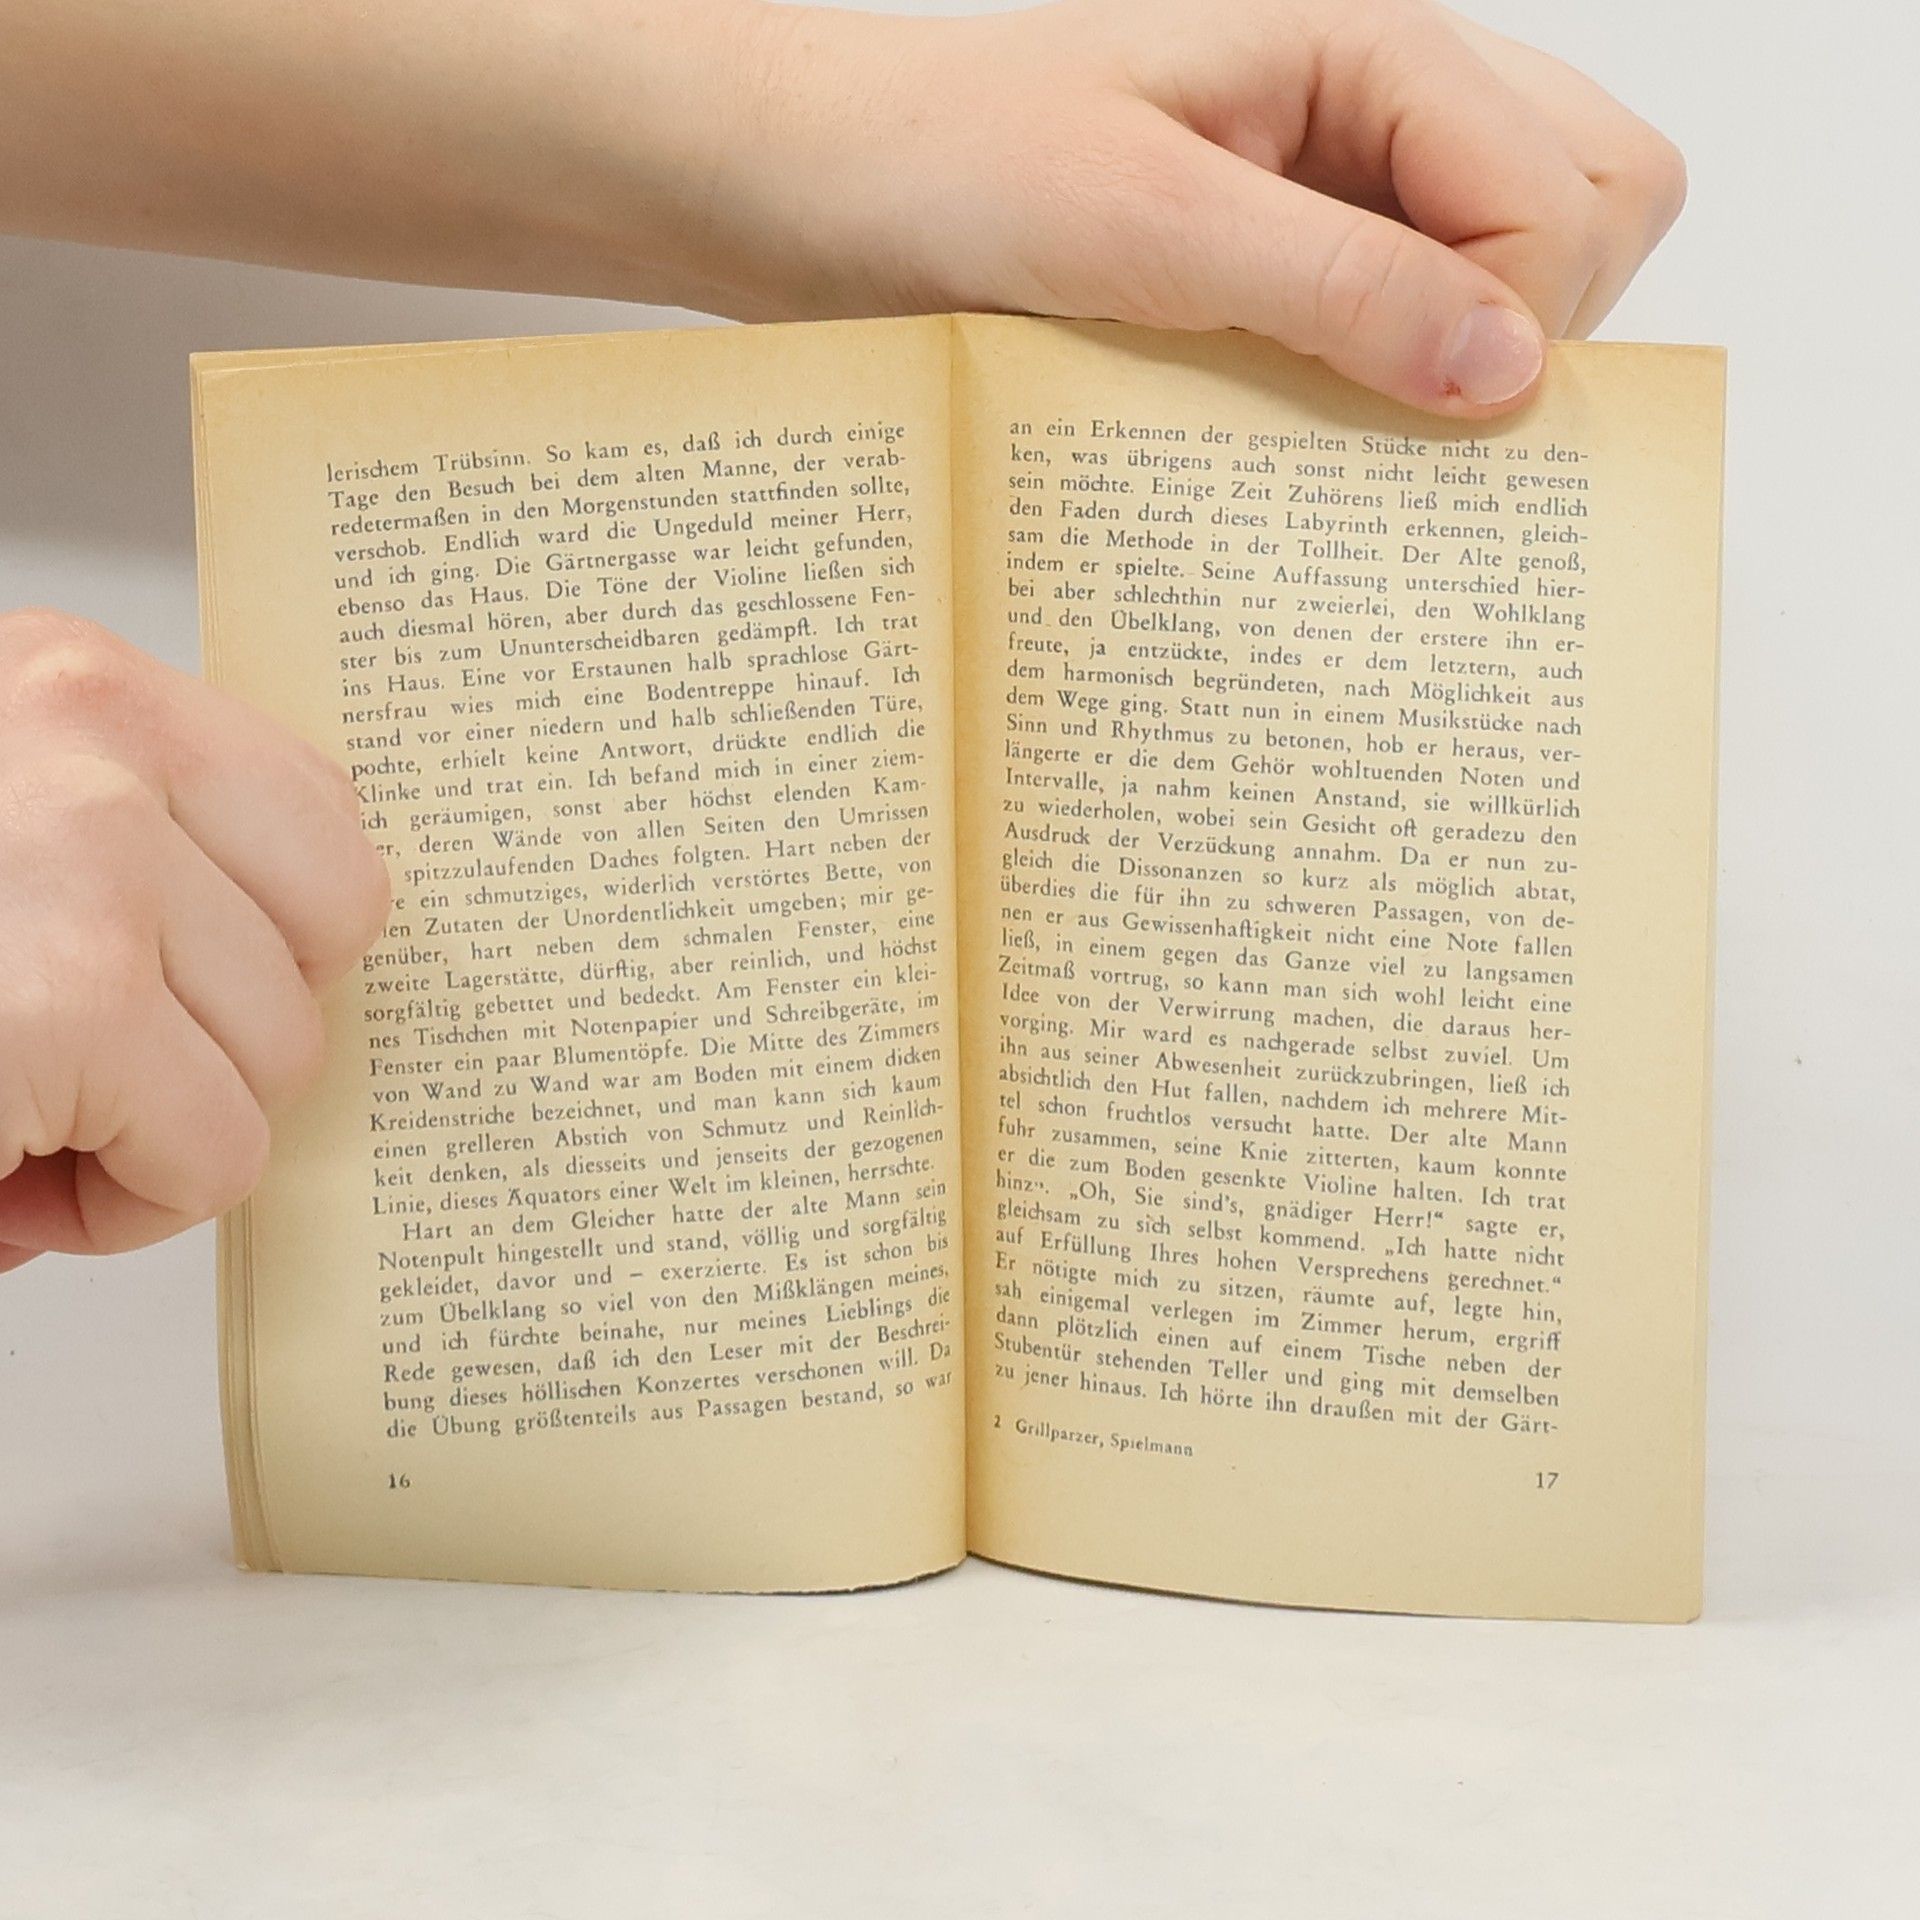 lerischem Trübsinn. So kam es, daß ich durch einige
Tage den Besuch bei dem alten Manne, der verab-
redetermaßen in den Morgenstunden stattfinden sollte,
verschob. Endlich ward die Ungeduld meiner Herr,
und ich ging. Die Gärtnergasse war leicht gefunden,
ebenso das Haus. Die Töne der Violine ließen sich
auch diesmal hören, aber durch das geschlossene Fen-
ster bis zum Ununterscheidbaren gedämpft. Ich trat
ins Haus. Eine vor Erstaunen halb sprachlose Gärt-
nersfrau wies mich eine Bodentreppe hinauf. Ich
stand vor einer niedern und halb schließenden Türe,
pochte, erhielt keine Antwort, drückte endlich die
Klinke und trat ein. Ich befand mich in einer ziem-
lich geräumigen, sonst aber höchst elenden Kam-
deren Wände von allen Seiten den Umrissen
spitzzulaufenden Daches folgten. Hart neben der
ein schmutziges, widerlich verstörtes Bette, von
Zutaten der Unordentlichkeit umgeben; mir ge-
genüber, hart neben dem schmalen Fenster, eine
zweite Lagerstätte, dürftig, aber reinlich, und höchst
sorgfältig gebettet und bedeckt. Am Fenster ein klei-
nes Tischchen mit Notenpapier und Schreibgeräte, im
Fenster ein paar Blumentöpfe. Die Mitte des Zimmers
von Wand zu Wand war am Boden mit einem dicken
Kreidenstriche bezeichnet, und man kann sich kaum
einen grelleren Abstich von Schmutz und Reinlich-
keit denken, als diesseits und jenseits der gezogenen
Linie, dieses Äquators einer Welt im kleinen, herrschte.
Hart an dem Gleicher hatte der alte Mann sein
Notenpult hingestellt und stand, völlig und sorgfältig
gekleidet, davor und – exerzierte. Es ist schon bis
zum Übelklang so viel von den Mißklängen meines,
und ich fürchte beinahe, nur meines Lieblings die
Rede gewesen, daß ich den Leser mit der Beschrei-
bung dieses höllischen Konzertes verschonen will. Da
die Übung größtenteils aus Passagen bestand, so war
16
an ein Erkennen der gespielten Stücke nicht zu den-
ken, was übrigens auch sonst nicht leicht gewesen
sein möchte. Einige Zeit Zuhörens ließ mich endlich
den Faden durch dieses Labyrinth erkennen, gleich-
sam die Methode in der Tollheit. Der Alte genoß,
indem er spielte. Seine Auffassung unterschied hier-
bei aber schlechthin nur zweierlei, den Wohlklang
und den Übelklang, von denen der erstere ihn er-
freute, ja entzückte, indes er dem letztern, auch
dem harmonisch begründeten, nach Möglichkeit aus
dem Wege ging. Statt nun in einem Musikstücke nach
Sinn und Rhythmus zu betonen, hob er heraus, ver-
längerte er die dem Gehör wohltuenden Noten und
Intervalle, ja nahm keinen Anstand, sie willkürlich
zu wiederholen, wobei sein Gesicht oft geradezu den
Ausdruck der Verzückung annahm. Da er nun zu-
gleich die Dissonanzen so kurz als möglich abtat,
überdies die für ihn zu schweren Passagen, von de-
nen er aus Gewissenhaftigkeit nicht eine Note fallen
ließ, in einem gegen das Ganze viel zu langsamen
Zeitmaß vortrug, so kann man sich wohl leicht eine
Idee von der Verwirrung machen, die daraus her-
vorging. Mir ward es nachgerade selbst zuviel. Um
ihn aus seiner Abwesenheit zurückzubringen, ließ ich
absichtlich den Hut fallen, nachdem ich mehrere Mit-
tel schon fruchtlos versucht hatte. Der alte Mann
fuhr zusammen, seine Knie zitterten, kaum konnte
er die zum Boden gesenkte Violine halten. Ich trat
hinzu. „Oh, Sie sind's, gnädiger Herr!“ sagte er,
gleichsam zu sich selbst kommend. „Ich hatte nicht
auf Erfüllung Ihres hohen Versprechens gerechnet.“
Er nötigte mich zu sitzen, räumte auf, legte hin,
sah einigemal verlegen im Zimmer herum, ergriff
dann plötzlich einen auf einem Tische neben der
Stubentür stehenden Teller und ging mit demselben
zu jener hinaus. Ich hörte ihn draußen mit der Gärt-
2 Grillparzer, Spielmann
17